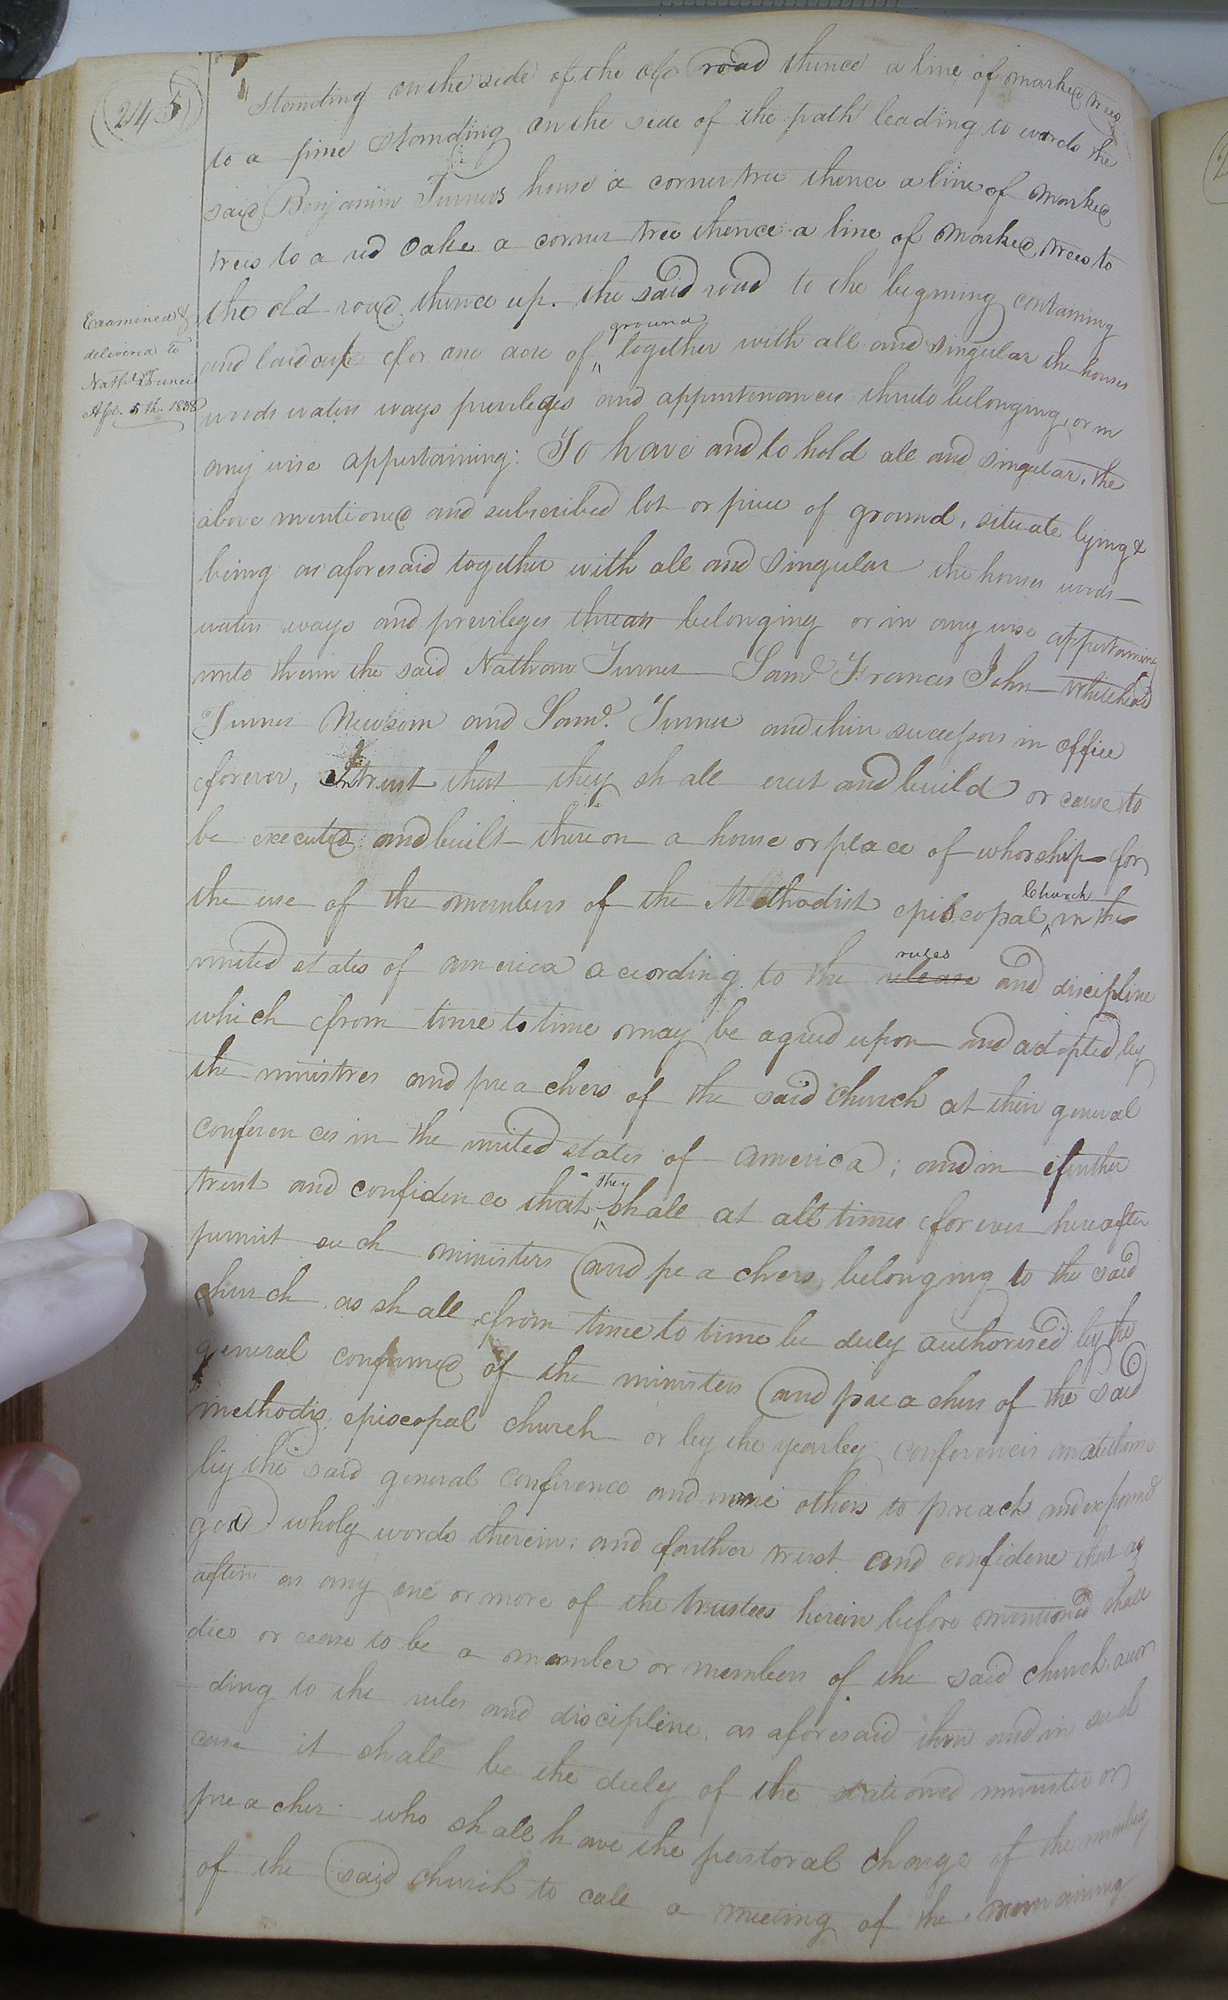 245
Standing on the side of the old road thence a line of marked trees
to a pine standing on the side of the path leading to wards the
said Benjamin Turners house a corner tree thence a line of marked
trees to a red oake a corner tree thence a line of marked trees to
the old road thence up the said road to the begining containing
Examined &
delivered to
Nathl Turner
Apl. 5th. 1838
ground
and laid out for one acre of together with all and singular the houses
woods waters ways privileges and appurtenances thereto belonging, or in
any wise appertaining: To have and to hold all and singular, the
above mentioned and subscribed lot or piece of ground, situate lying &
being as aforesaid together with all and singular the houses woods
waters ways and privileges belonging or in any wise appertaining
unto them the said Nathan Turner Saml Francis John Whitehead
Turner Newsom and Saml. Turner and their successors in office
forever, In trust that they shall erect and build or cause to
be executed and built there on a house or place of whorship for
the use of the members of the Methodist episcopal church in the
united states of america acording to the release rules and discipline
which from time to time may be agreed upon and adopted by
the ministres and preachers of the said church at their general
conferences in the united states of america; and in further
trust and confidence that they shall at all times forever hereafter
permit such ministers and preachers, belonging to the said
church as shall from time to time be duly authorised by the
general of the ministers and preachers of the said
methodis episcopal church or by the yearley conferences
by the said general conference and none others to preach and expound
god wholy words therein; and farther trust and confidene that as
often as any one or more of the trustees herein before mentioned shall
dies or cease to be a member or members of the said church accor
ding to the rules and discipline as aforesaid then and in such
case it shall be the duly of the stationed minister or
preacher who shall have the pastoral charge of the members
of the said church to call a meeting of the remaining